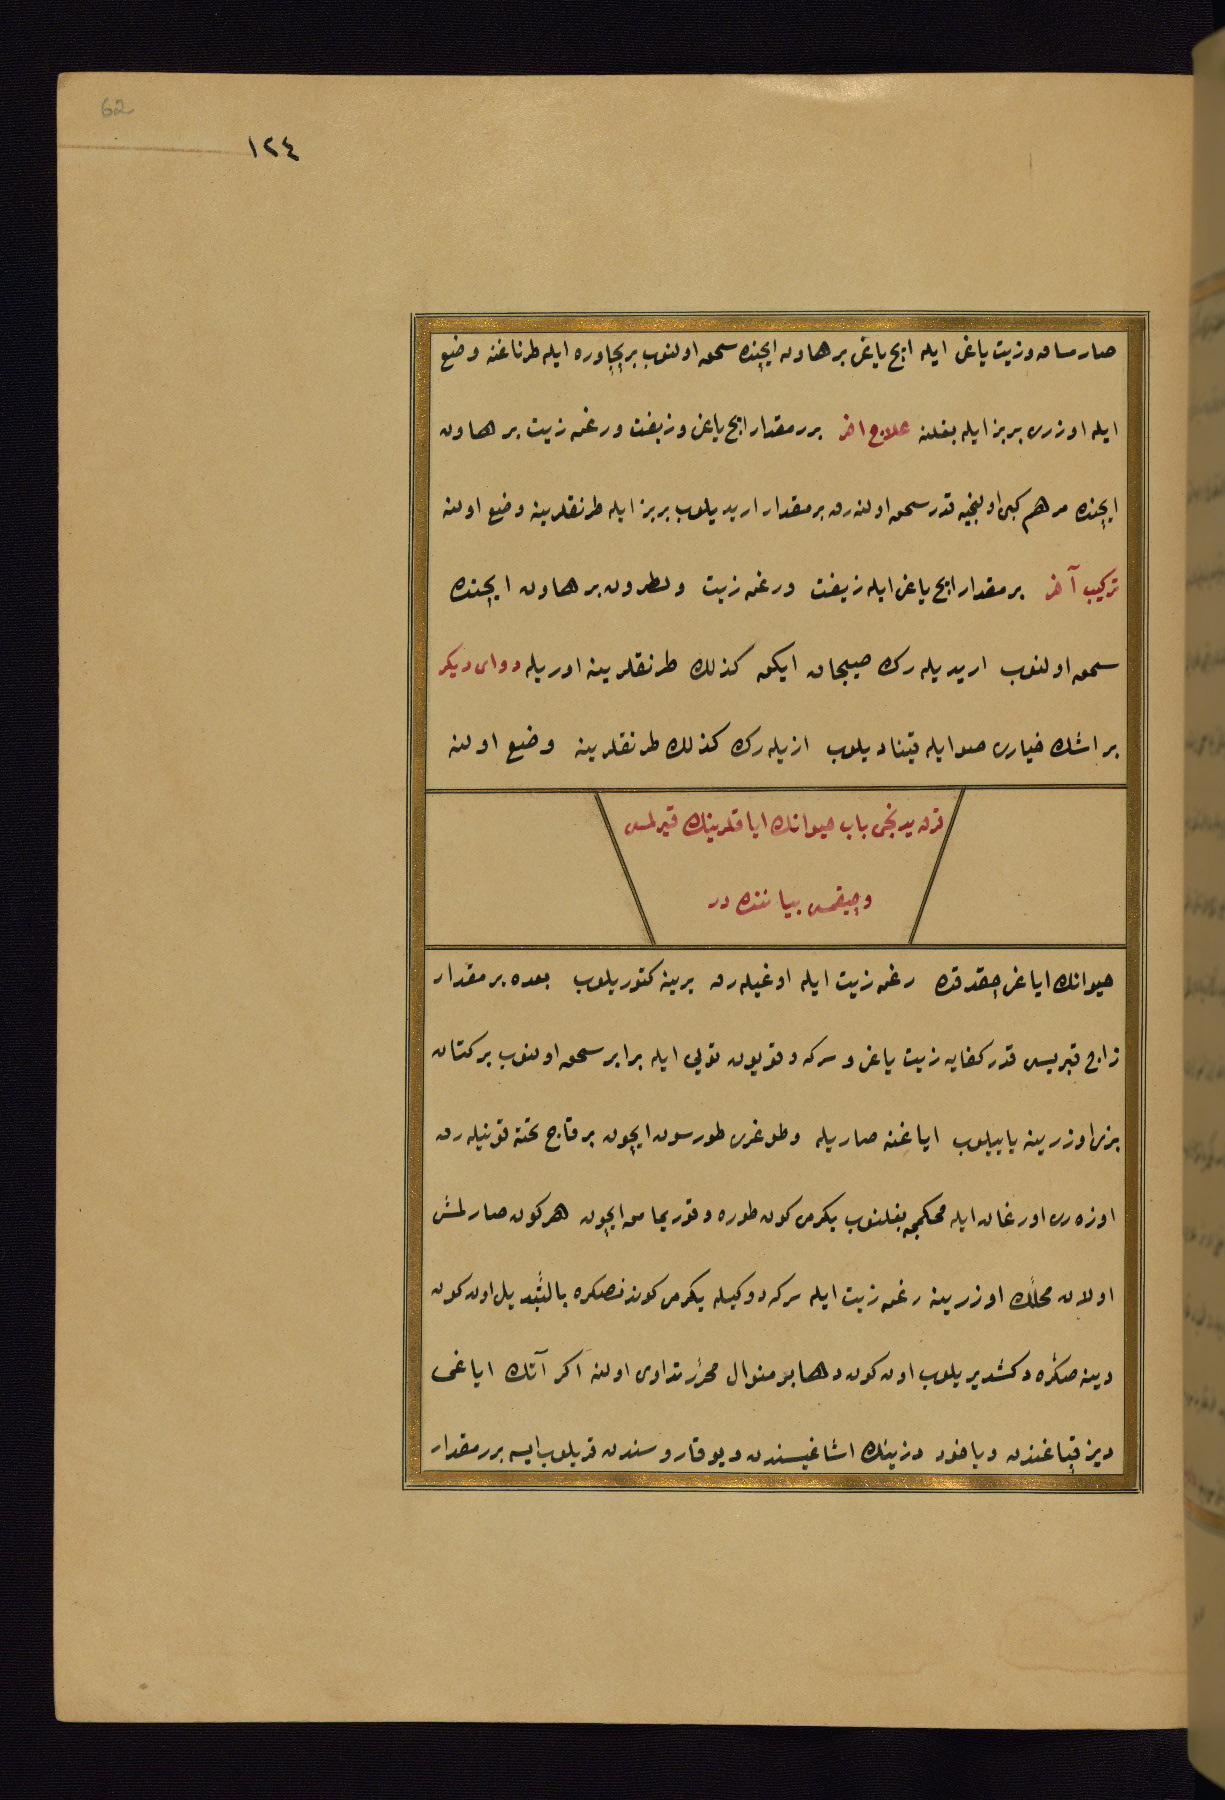 62
١٢٤
صارمساق و زیت یاغی ایله ایچ یاغی بر هاون ایچنده سحق اولنوب بر پچاوره ایله طرناغنه وضع
ایله اوزری بر بز ایله بغلنه علاج اخر برر مقدار ایچ یاغی و زیفت و رغن زیت بر هاون
ایچنده مرهم کبی اولنجیه قدر سحق اولنه‌رق بر مقدار اریدیلوب بر بز ایله طرنقلرینه وضع اولنه
ترکیب آخر بر مقدار ایچ یاغی ایله زیفت و رغن زیت و نطرون بر هاون ایچنده
سحق اولنوب اریدیله‌رک صیجاق ایکن کذلك طرنقلرینه اوریله دوای دیکر
بر اشك خیاری صو ایله قینادیلوب ازیله‌رک کذلك طرنقلرینه وضع اولنه
قرق یدنجی باب حیوانك ایاقلرینك قیرلمسی
و چیقمسی بیاننده در
حیوانك ایاغی چقدقده رغن زیت ایله اوغیله‌رق یرینه کتوریلوب بعده بر مقدار
زاج قبریسی قدر کفایه زیت یاغی و سرکه و قویون تویی ایله برابر سحق اولنوب بر کتان
بزی اوزرینه یاییلوب ایاغنه صاریله و طوغری طورسون ایچون بر قاچ تخته قونیله‌رق
اوزه‌ری اورغان ایله محکمجه بغلنوب یکرمی کون طوره و قوریمامق ایچون هر کون صارلمش
اولان محلك اوزرینه رغن زیت ایله سرکه دوکیله یکرمی کوندنصکره بالتبدیل اون کون
دینه صکره دکشدیریلوب اون کون دها بو منوال محرر تداوی اولنه اکر آتك ایاغی
دیز قپاغندن و یاخود دزینك اشاغیسندن و یوقاروسندن قریلوب ایسه برر مقدار